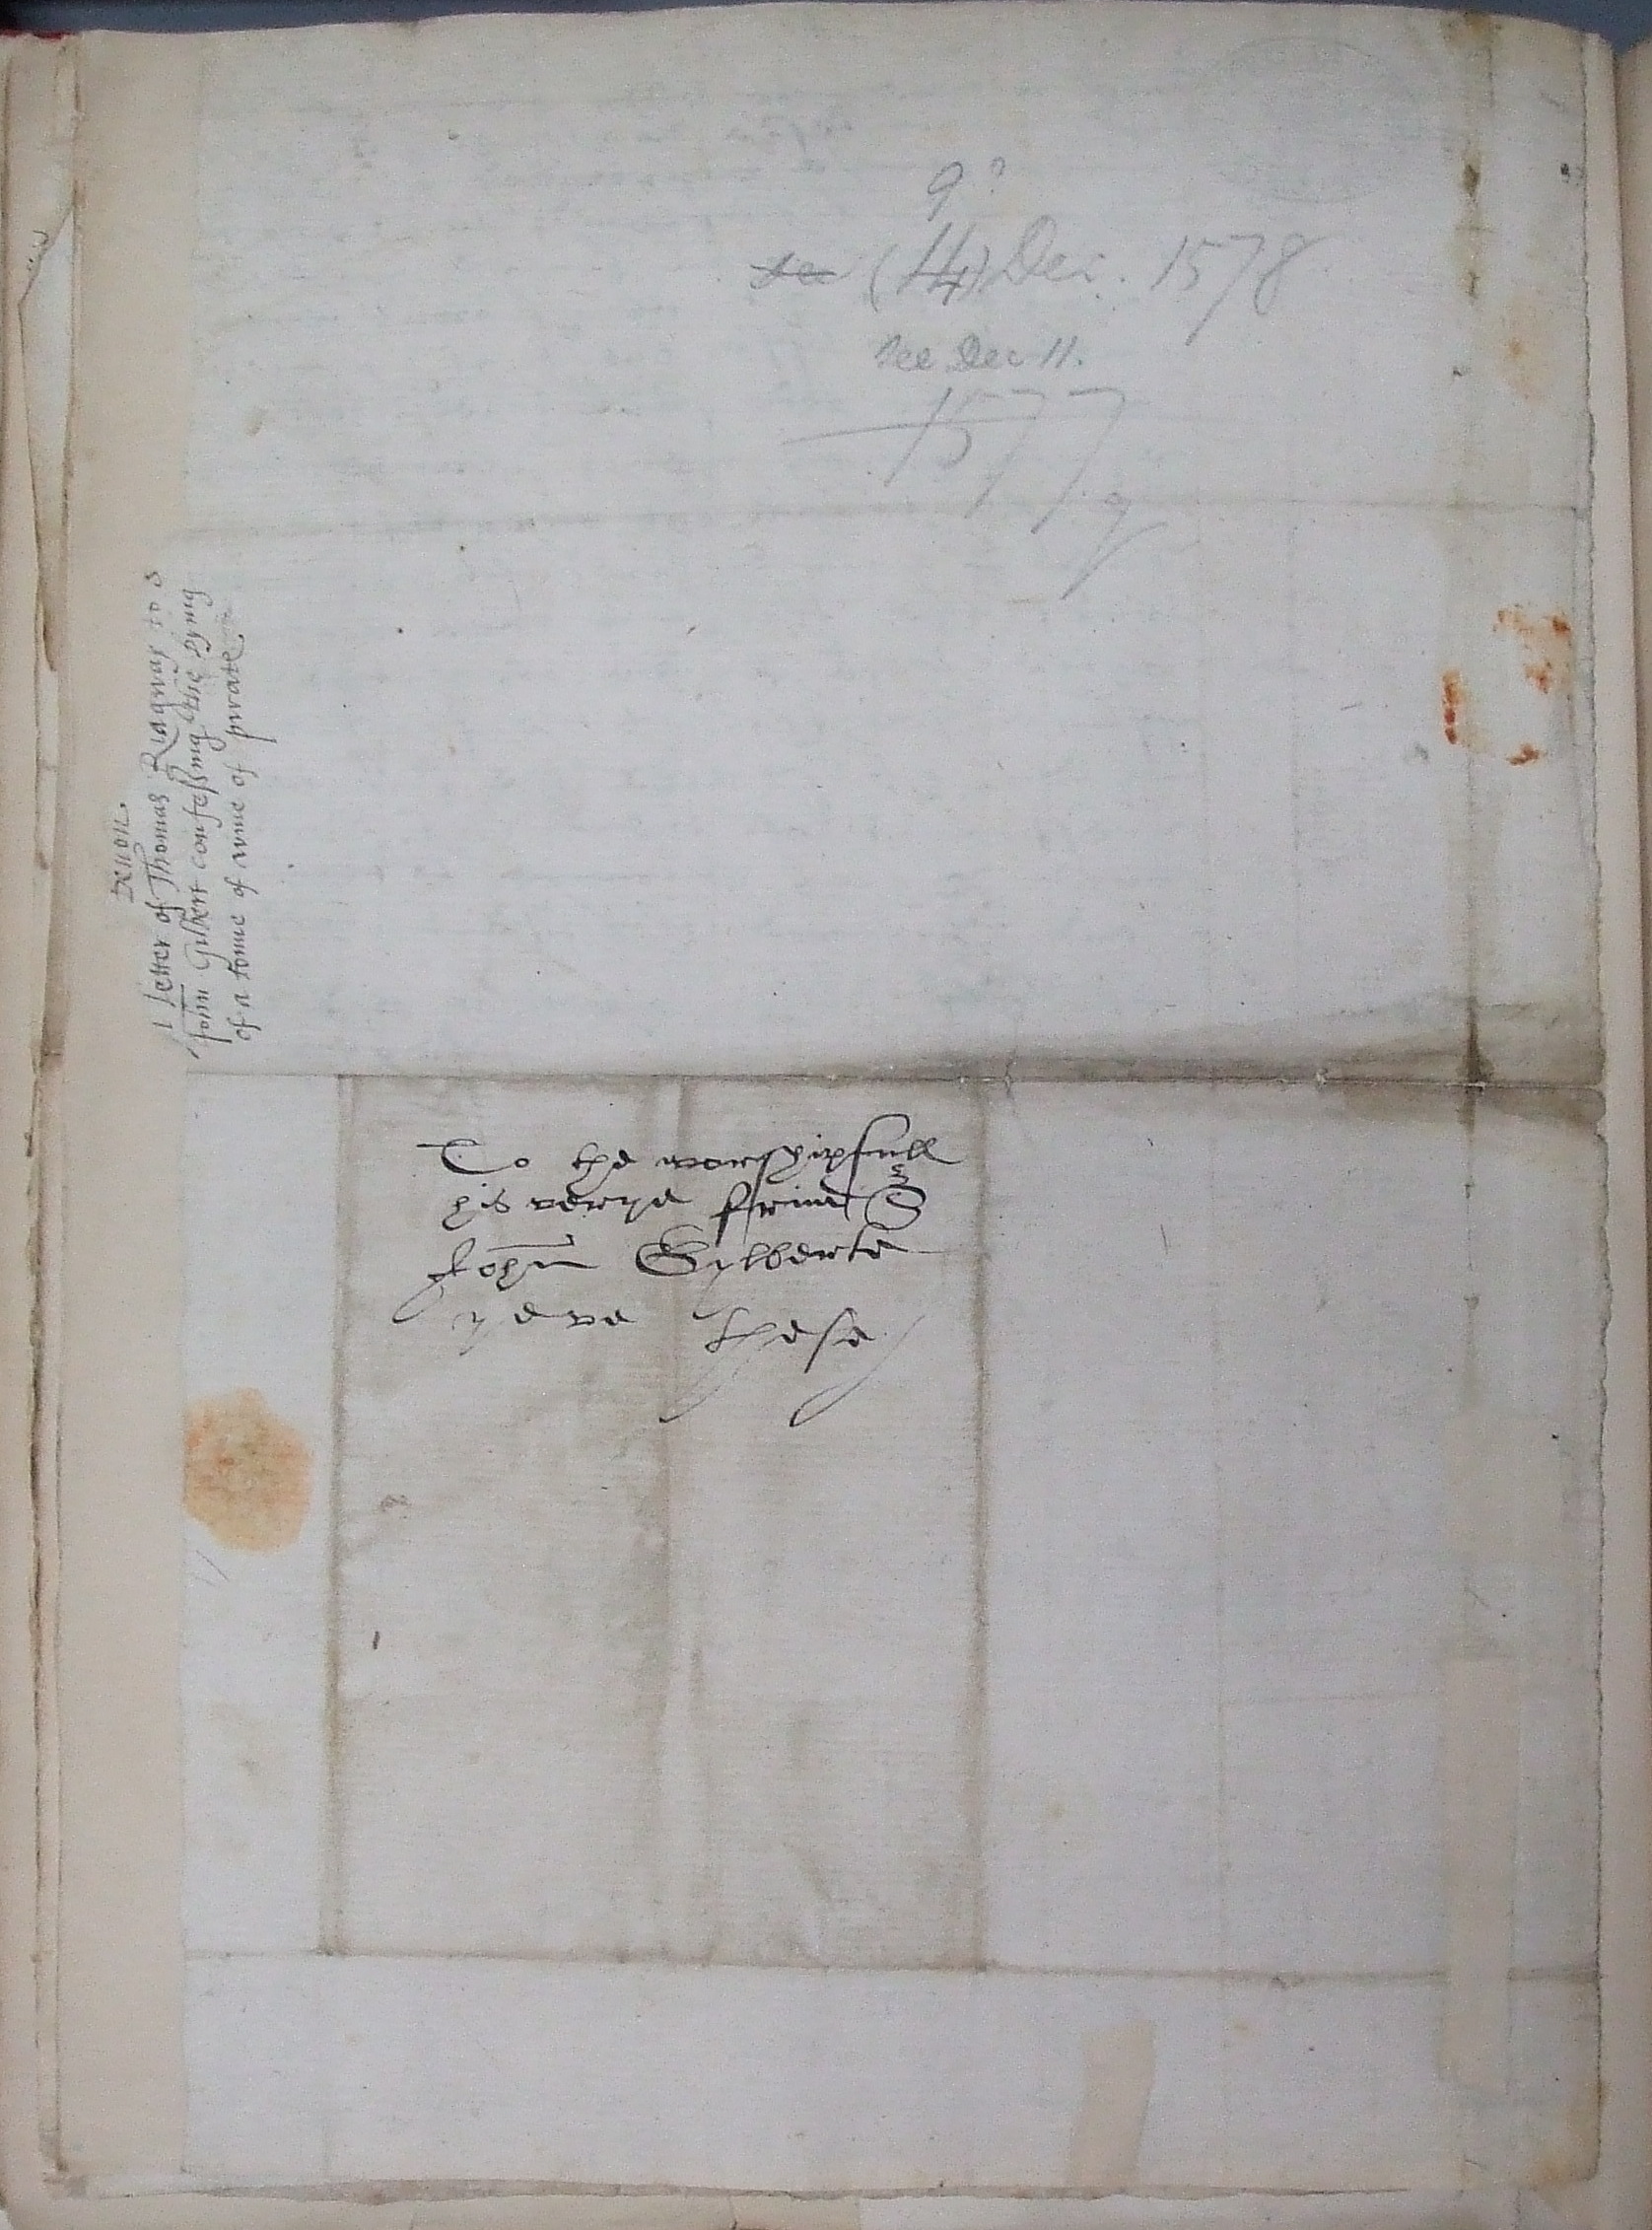 9?
(14) Dec. 1578
See Dec 11.
1577
9
Deuon.
l letter of Thomas Ridgway to S
John Gilbert confessing the
of a tonne of wine of pirate
To the worshipfull
his verye frind Sr
John Gylberte
yeve these